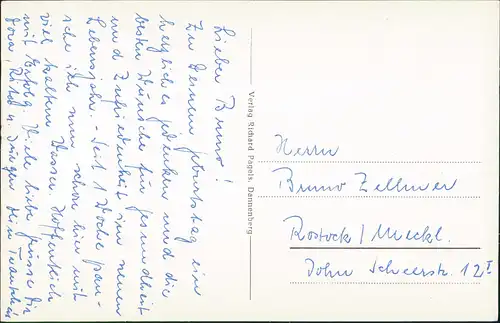 Lieber Bruno!
Zu Deinem Geburtstag ein
herzliches Gedenken und die
besten Wünsche für Gesundheit
und Zufriedenheit im neuen
Lebensjahr. - Seit 1 Woche pan-
sche ich nun schon hier mit
viel kaltem Wasser. Hoffentlich
mit Erfolg. Viele liebe Grüsse Dir
Dora, u. Jürgen Dein
Verlag Richard Pagels, Dannenberg
Herrn
Bruno Zellmer
Rostock / Meckl.
John Scheerstr. 12 I